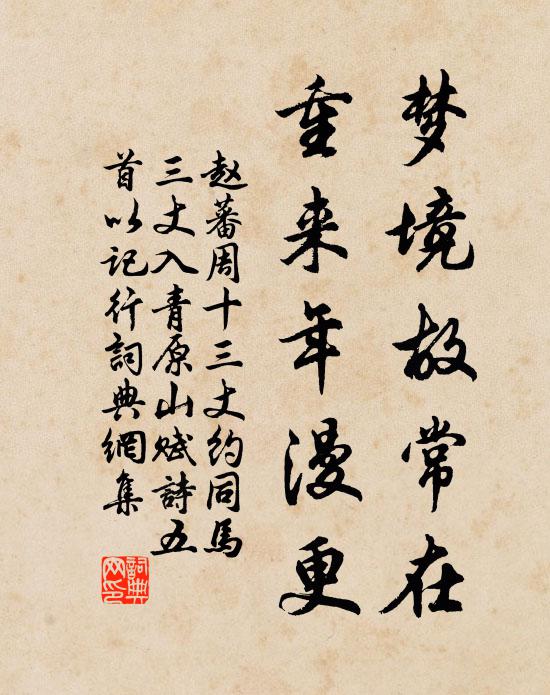 梦境故常在
重来年漫更
赵蕃周十三丈约同馬
三丈入青原山赋詩五
首以记行詞典網集
詞典网印